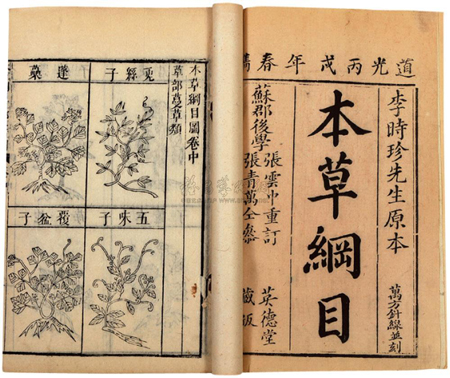 道光丙戌年春鐫
李時珍先生原本
萬方針線並刻
本草綱目
英德堂
藏板
蘇郡後學
張雲中重訂
張青萬仝參
本草綱目圖卷中
草部蔓草類
兎絲子
五味子
蓬蘽
覆盆子